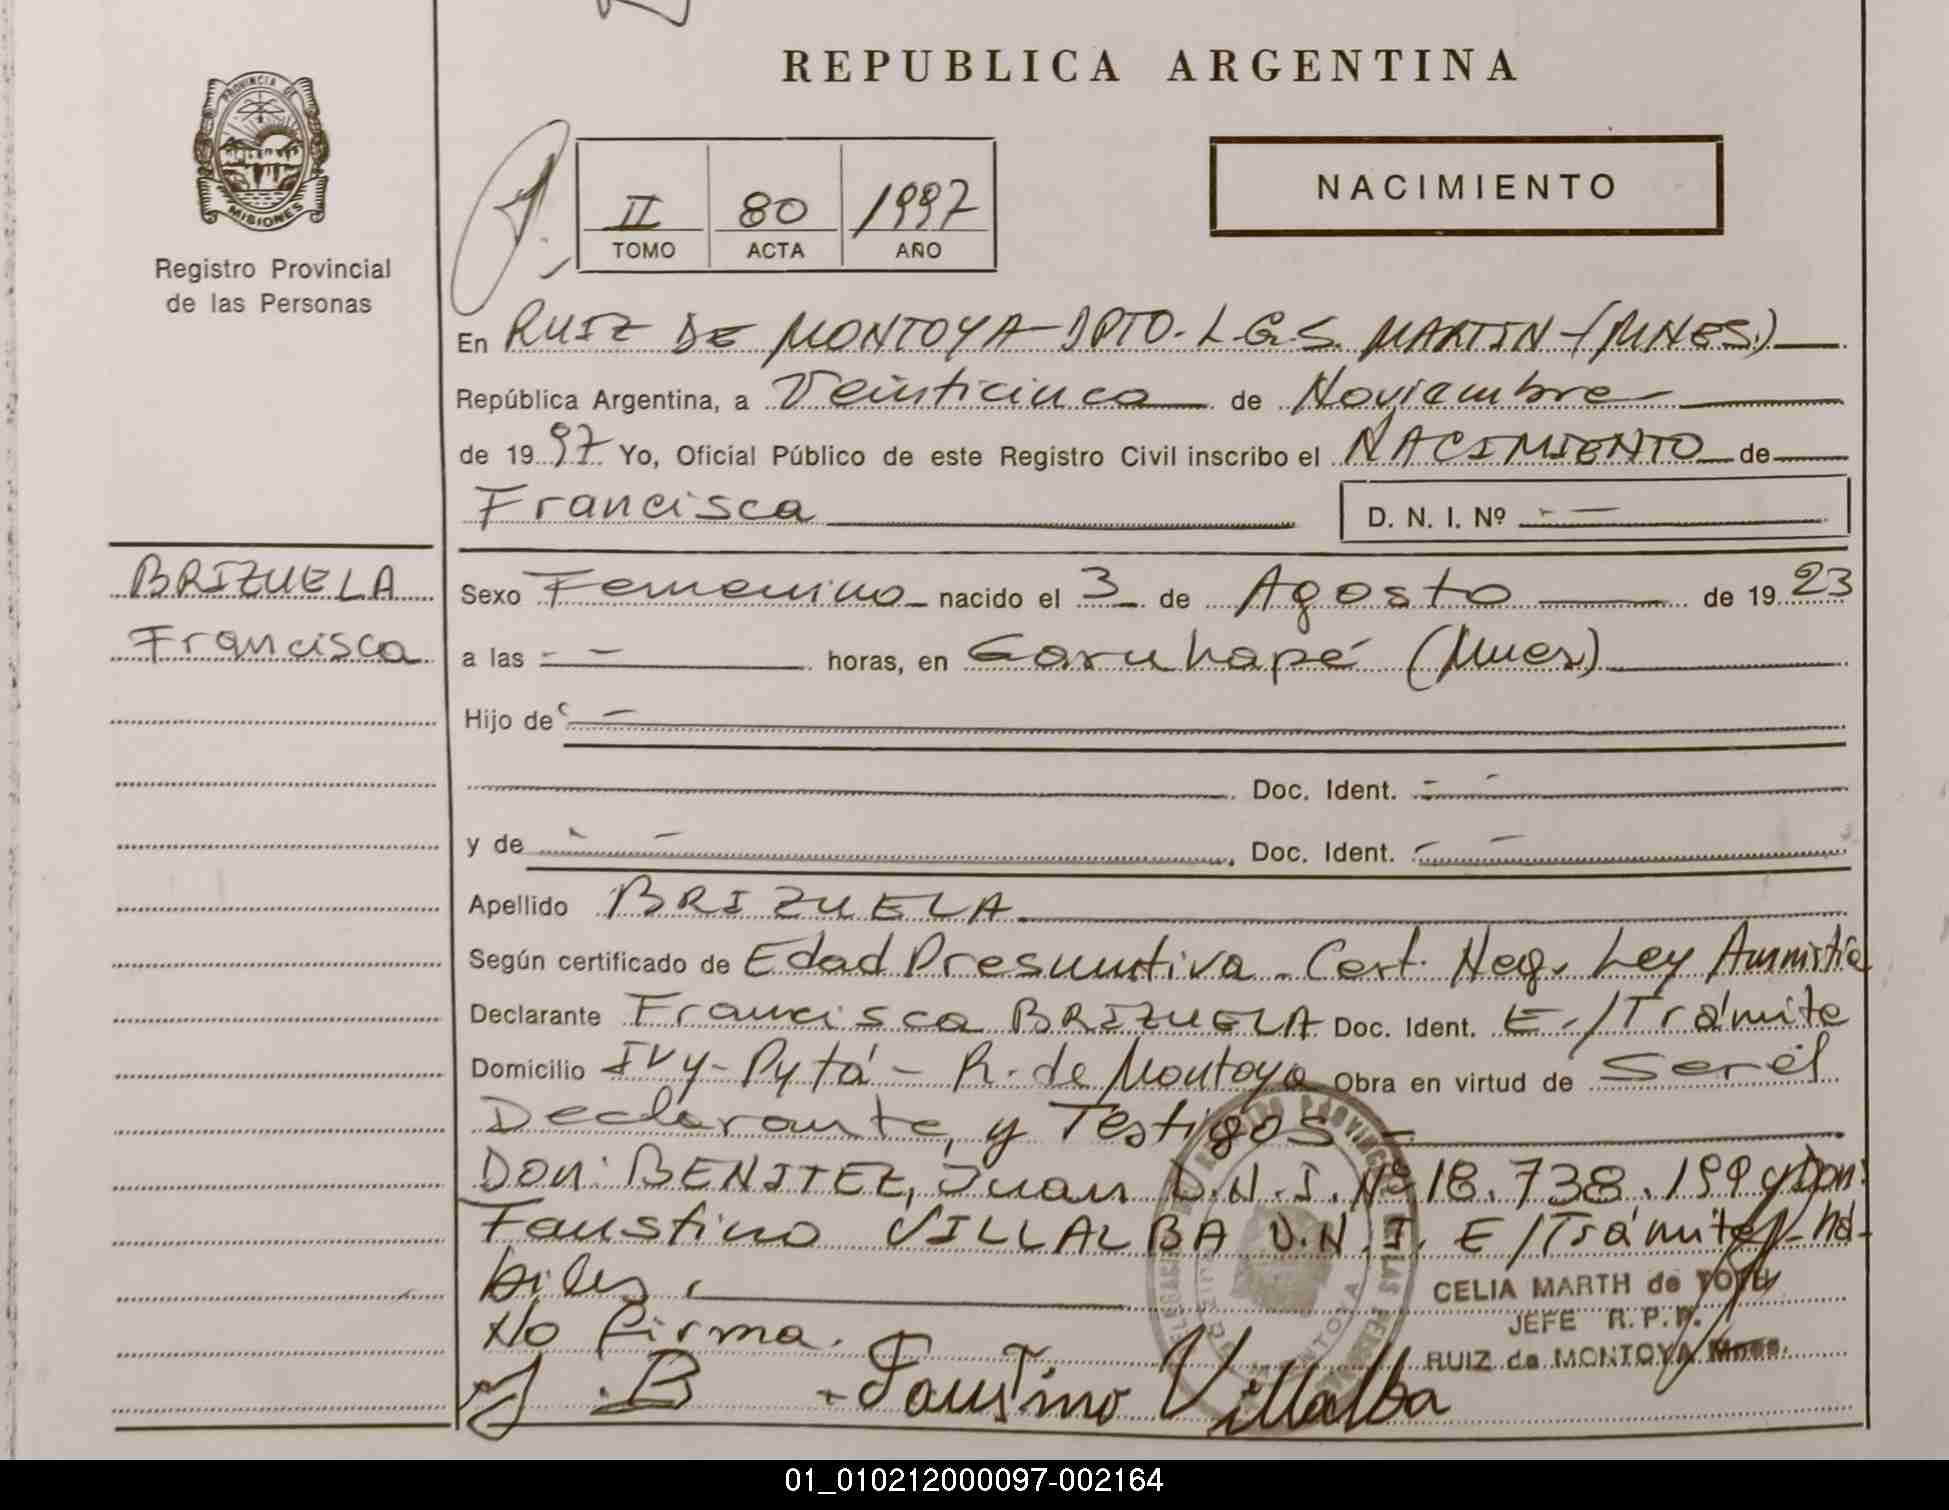 REPUBLICA ARGENTINA
PROVINCIA DE
MISIONES
Registro Provincial
de las Personas
II 80 1997
TOMO ACTA AÑO
NACIMIENTO
En RUIZ DE MONTOYA-DPTO. L.G.S. MARTIN-(MNES.)
República Argentina, a Veinticinco de Noviembre
de 1997 Yo, Oficial Público de este Registro Civil inscribo el NACIMIENTO de
Francisca D. N. I. Nº - -
BRIZUELA
Francisca
Sexo Femenino nacido el 3 de Agosto de 1923
a las - - horas, en Garuhapé (Mnes)
Hijo de - -
Doc. Ident. - -
y de - - Doc. Ident. - -
Apellido BRIZUELA
Según certificado de Edad Presuntiva - Cert. Neg. Ley Amnistía
Declarante Francisca BRIZUELA Doc. Ident. E./Trámite
Domicilio IVY-Pytá - R. de Montoya Obra en virtud de Ser él
Declarante, y Testigos -
Don: BENITEZ, Juan D.N.I. Nº 18.738.199 y Don:
Faustino VILLALBA D.N.I. E/Trámite - há-
biles.
No firma.
CELIA MARTH de TOTH
JEFE R.P.P.
RUIZ de MONTOYA Mnes.
J. B - Faustino Villalba
01_010212000097-002164